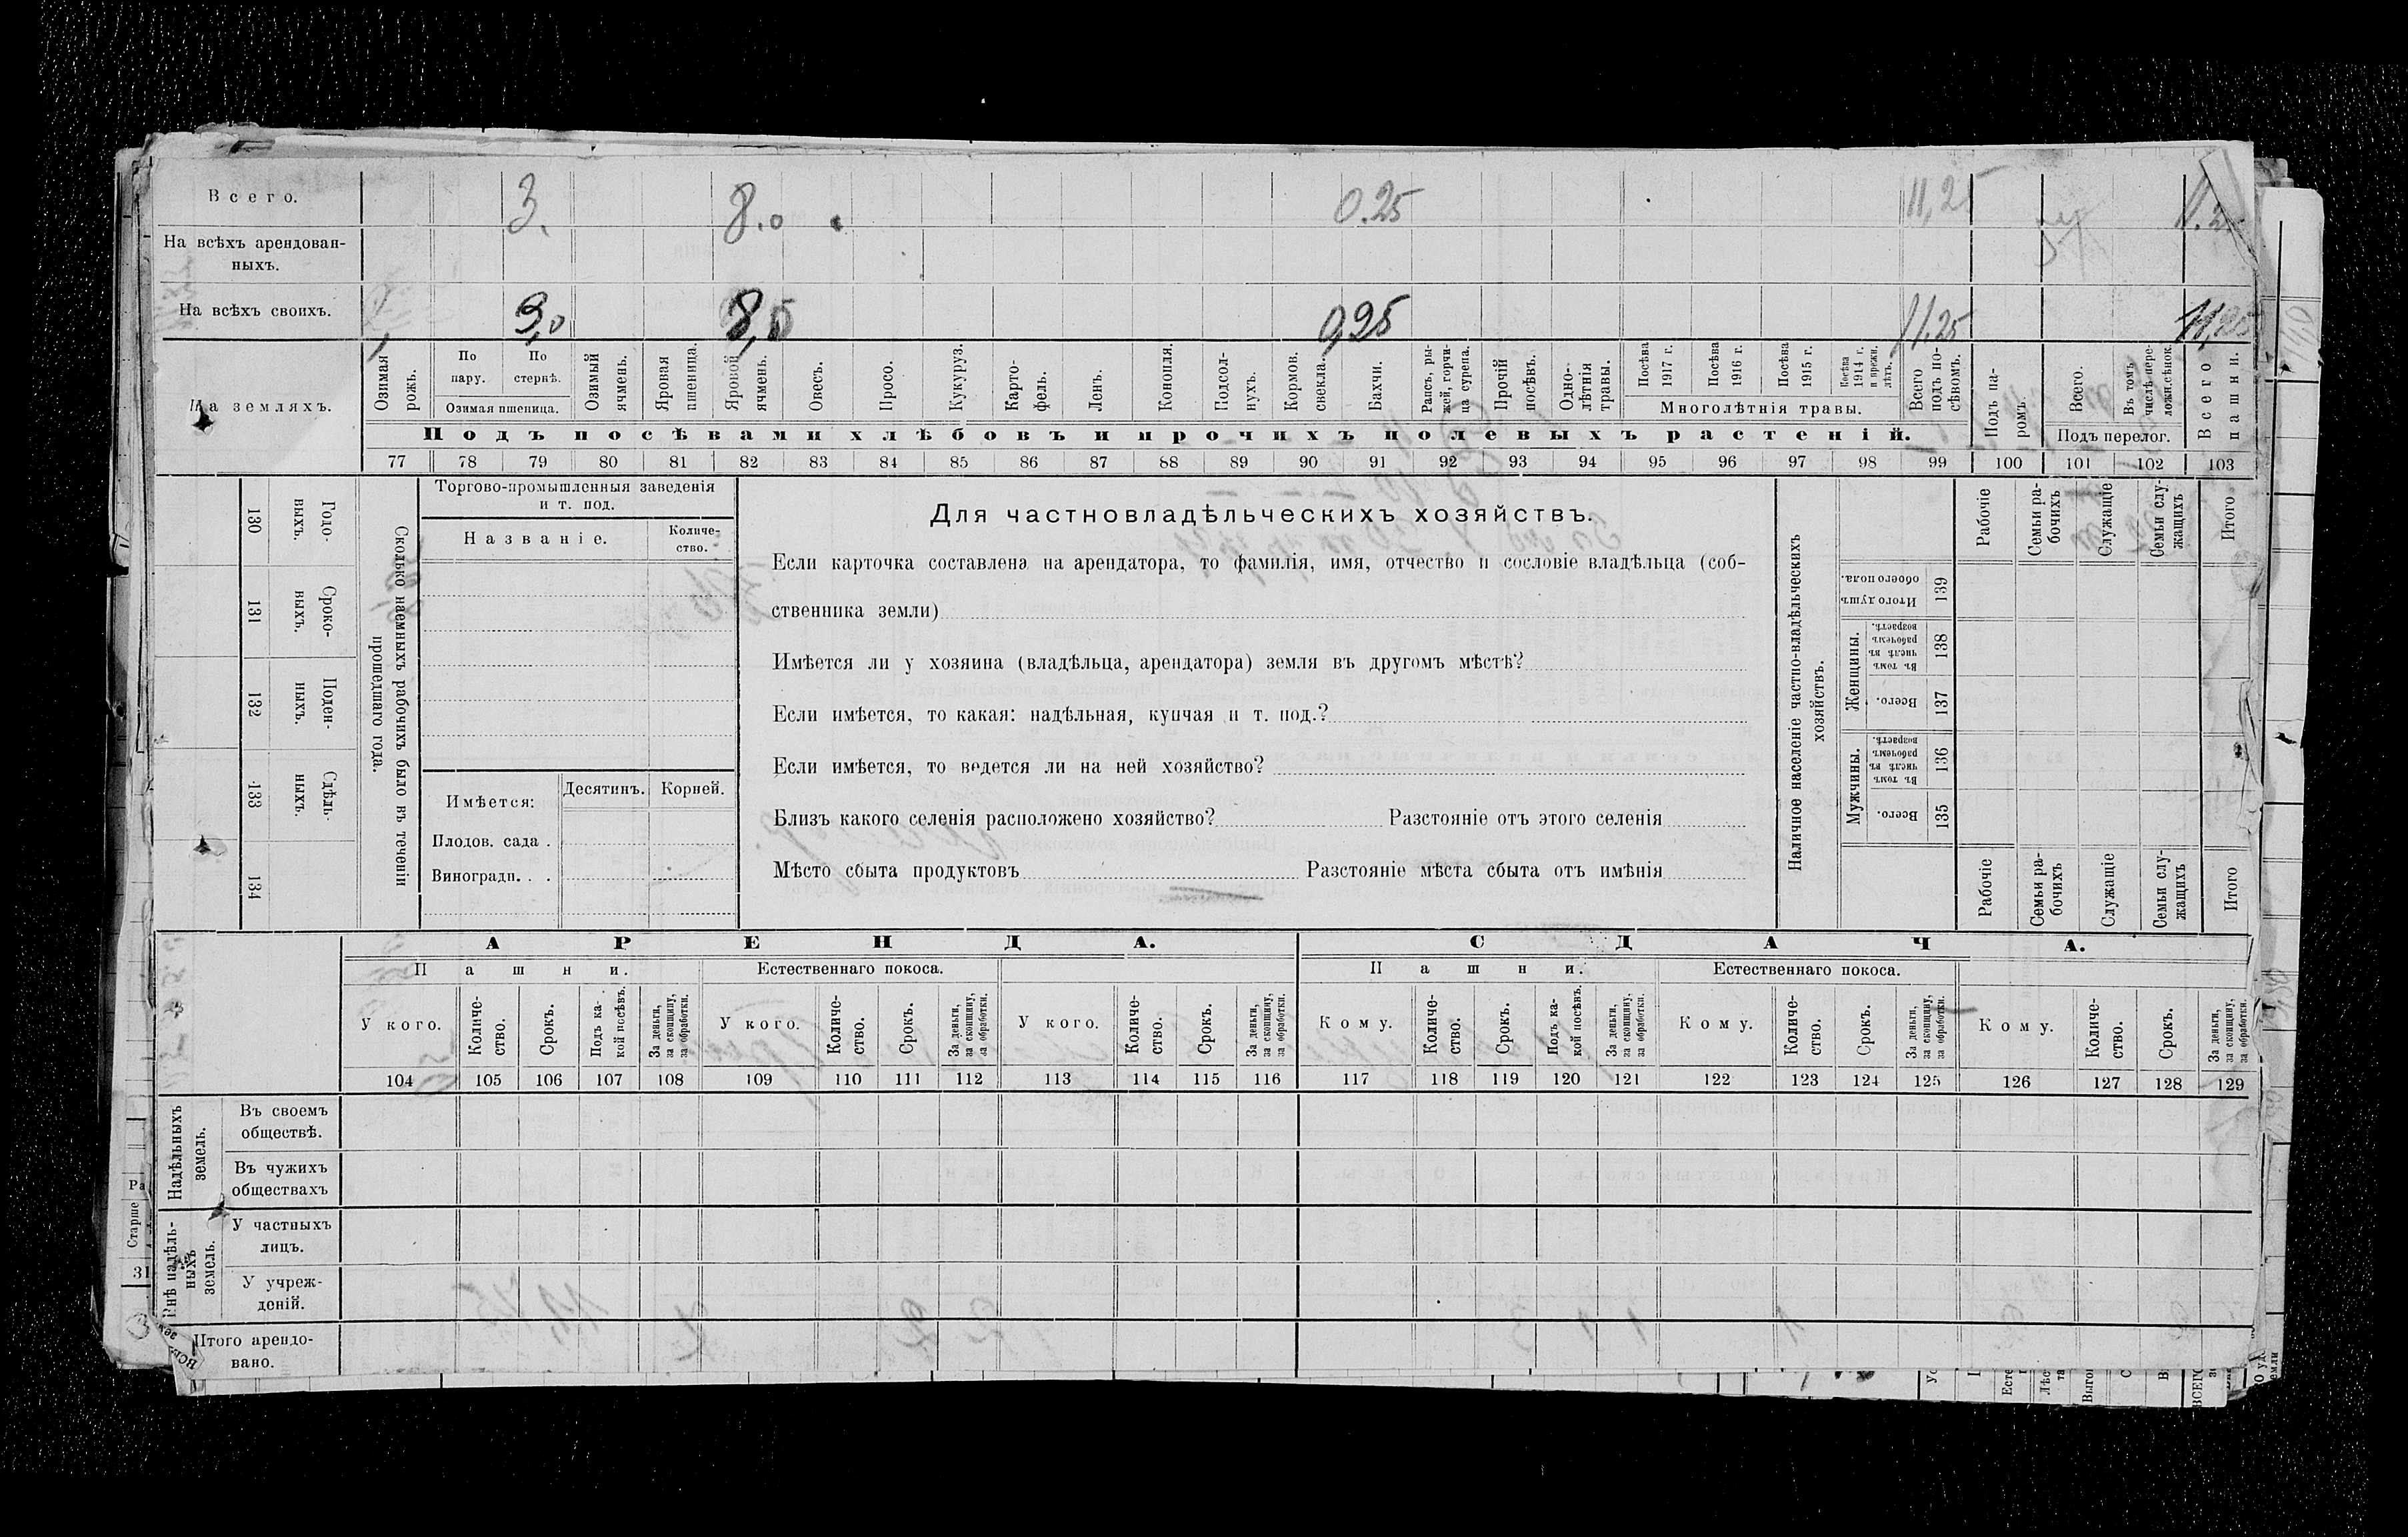 Всего. 3. 8.0 0.25 11,25 11.2
На всѣхъ арендован-
ныхъ.
На всѣхъ своихъ. 3,0 8,0 0,25 11.25 11,25
На земляхъ.
Озимая рожь.
По пару.
По стернѣ.
Озимая пшеница.
Озимый ячмень.
Яровая пшеница.
Яровой ячмень.
Овесъ.
Просо.
Кукуруз.
Карто-
фель.
Ленъ.
Конопля.
Подсол-
нухъ.
Кормов.
свекла.
Бахчи.
Рапсъ, ры-
жей, горчи-
ца сурепа.
Прочій
посѣвъ.
Одно-
лѣтнія
травы.
Посѣва
1917 г.
Посѣва
1916 г.
Посѣва
1915 г.
Посѣва
1914 г.
и прежн.
лѣтъ.
Многолѣтнія травы.
Всего
подъ по-
сѣвомъ.
Подъ па-
ромъ.
Всего.
Въ томъ
числѣ пере-
ложн.сѣнок.
Подъ перелог.
Всего
пашни.
Подъ посѣвами хлѣбовъ и прочихъ полевыхъ растеній.
77 78 79 80 81 82 83 84 85 86 87 88 89 90 91 92 93 94 95 96 97 98 99 100 101 102 103
130
Годо-
ныхъ.
131
Сроко-
ныхъ.
132
Поден-
ныхъ.
133
Сдѣль-
ныхъ.
134
Сколько наемныхъ рабочихъ было въ теченіи
прошедшаго года.
Торгово-промышленныя заведенія
и т. под.
Названіе.
Количе-
ство.
Имѣется:
Десятинъ.
Корней.
Плодов. сада .
Виноградн. . .
Для частновладѣльческихъ хозяйствъ.
Если карточка составлена на арендатора, то фамилія, имя, отчество и сословіе владѣльца (соб-
ственника земли)
Имѣется ли у хозяина (владѣльца, арендатора) земля въ другомъ мѣстѣ?
Если имѣется, то какая: надѣльная, купчая и т. под.?
Если имѣется, то ведется ли на ней хозяйство?
Близъ какого селенія расположено хозяйство? Разстояніе отъ этого селенія
Мѣсто сбыта продуктовъ Разстояніе мѣста сбыта отъ имѣнія
Наличное населеніе частно-владѣльческихъ
хозяйствъ.
Рабочіе
Семьи ра-
бочихъ
Служащіе
Семьи слу-
жащихъ
Итого
Итого душъ
обоего пола.
139
Женщины.
Въ томъ
числѣ въ
рабочемъ
возрастѣ.
138
Всего.
137
Мужчины.
Въ томъ
числѣ въ
рабочемъ
возрастѣ.
136
Всего.
135
Рабочіе
Семьи ра-
бочихъ
Служащіе
Семьи слу-
жащихъ
Итого
АРЕНДА. СДАЧА.
Пашни. Естественнаго покоса. Пашни. Естественнаго покоса.
У кого.
Количе-
ство.
Срокъ.
Подъ ка-
кой посѣвъ.
За деньги,
за скопщину,
за обработки.
У кого.
Количе-
ство.
Срокъ.
За деньги,
за скопщину,
за обработки.
У кого.
Количе-
ство.
Срокъ.
За деньги,
за скопщину,
за обработки.
Кому.
Количе-
ство.
Срокъ.
Подъ ка-
кой посѣвъ.
За деньги,
за скопщину,
за обработки.
Кому.
Количе-
ство.
Срокъ.
За деньги,
за скопщину,
за обработки.
Кому.
Количе-
ство.
Срокъ.
За деньги,
за скопщину,
за обработки.
104 105 106 107 108 109 110 111 112 113 114 115 116 117 118 119 120 121 122 123 124 125 126 127 128 129
Надѣльныхъ
земель.
Въ своемъ
обществѣ.
Въ чужихъ
обществахъ
Внѣ надѣль-
ныхъ
земель.
У частныхъ
лицъ.
У учреж-
деній.
Итого арендо-
вано.
Ра
Старше
31